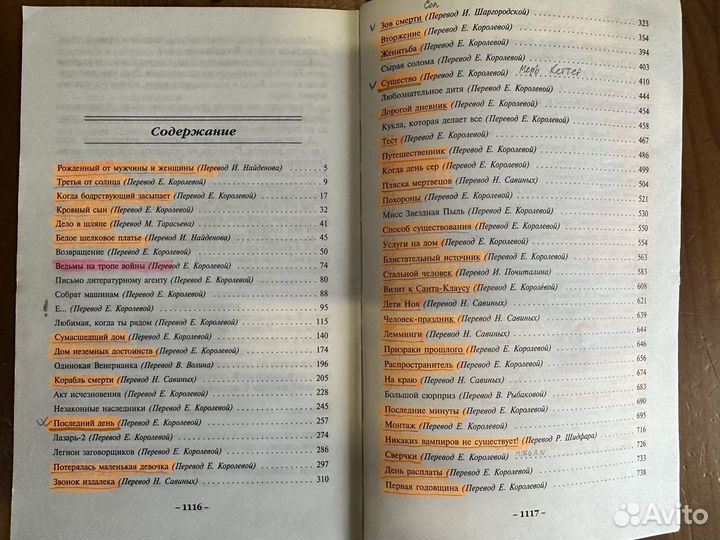 Содержание
Рожденный от мужчины и женщины (Перевод И. Найденова) 5
Третья от солнца (Перевод Е. Королевой) 9
Когда бодрствующий засыпает (Перевод Е. Королевой) 17
Кровный сын (Перевод Е. Королевой) 32
Дело в шляпе (Перевод М. Тарасьева) 41
Белое шелковое платье (Перевод И. Найденова) 45
Возвращение (Перевод Е. Королевой) 50
Ведьмы на тропе войны (Перевод Е. Королевой) 74
Письмо литературному агенту 80
Собрат машинам (Перевод Е. Королевой) 88
Е... (Перевод Е. Королевой) 95
Любимая, когда ты рядом (Перевод Е. Королевой) 115
Сумасшедший дом (Перевод Е. Королевой) 140
Дом неземных достоинств (Перевод Е. Королевой) 174
Одинокая Венерианка (Перевод В. Волина) 196
Корабль смерти (Перевод Н. Савиных) 205
Акт исчезновения (Перевод Е. Королевой) 228
Незаконные наследники (Перевод Е. Королевой) 245
Последний день (Перевод Е. Королевой) 257
Лазарь-2 (Перевод Е. Королевой) 274
Легион заговорщиков (Перевод Е. Королевой) 286
Потерялась маленькая девочка (Перевод Е. Королевой) 297
Звонок издалека (Перевод Н. Савиных) 310
– 1116 –
Соп
Зов смерти (Перевод И. Шаргородской) 323
Вторжение (Перевод Е. Королевой) 354
Женитьба (Перевод Е. Королевой) 394
Сырая солома (Перевод Е. Королевой) 403
Существо (Перевод Е. Королевой) 410
Любознательное дитя (Перевод Е. Королевой) 444
Дорогой дневник (Перевод Е. Королевой) 454
Кукла, которая делает все (Перевод Е. Королевой) 458
Тест (Перевод Е. Королевой) 467
Путешественник (Перевод Е. Королевой) 486
Когда день сер (Перевод Е. Королевой) 499
Пляска мертвецов (Перевод Н. Савиных) 504
Похороны (Перевод Е. Королевой) 521
Мисс Звездная Пыль (Перевод Е. Королевой) 530
Способ существования (Перевод Е. Королевой) 545
Услуги на дом (Перевод Е. Королевой) 550
Блистательный источник (Перевод Е. Королевой) 563
Стальной человек (Перевод И. Почиталина) 583
Визит к Санта-Клаусу (Перевод Е. Королёвой) 608
Дети Ноя (Перевод Н. Савиных) 621
Человек-праздник (Перевод Н. Савиных) 639
Лемминги (Перевод Н. Савиных) 644
Призраки прошлого (Перевод Е. Королевой) 646
Распространитель (Перевод Е. Королевой) 656
На краю (Перевод Н. Савиных) 671
Большой сюрприз (Перевод В. Рыбаковой) 683
Последние минуты (Перевод Е. Королевой) 687
Монтаж (Перевод Е. Королевой) 695
Никаких вампиров не существует! (Перевод Р. Шидфара) 716
Сверчки (Перевод Е. Королевой) 726
День расплаты (Перевод Е. Королевой) 733
Первая годовщина (Перевод Е. Королевой) 738
– 1117 –
Avito